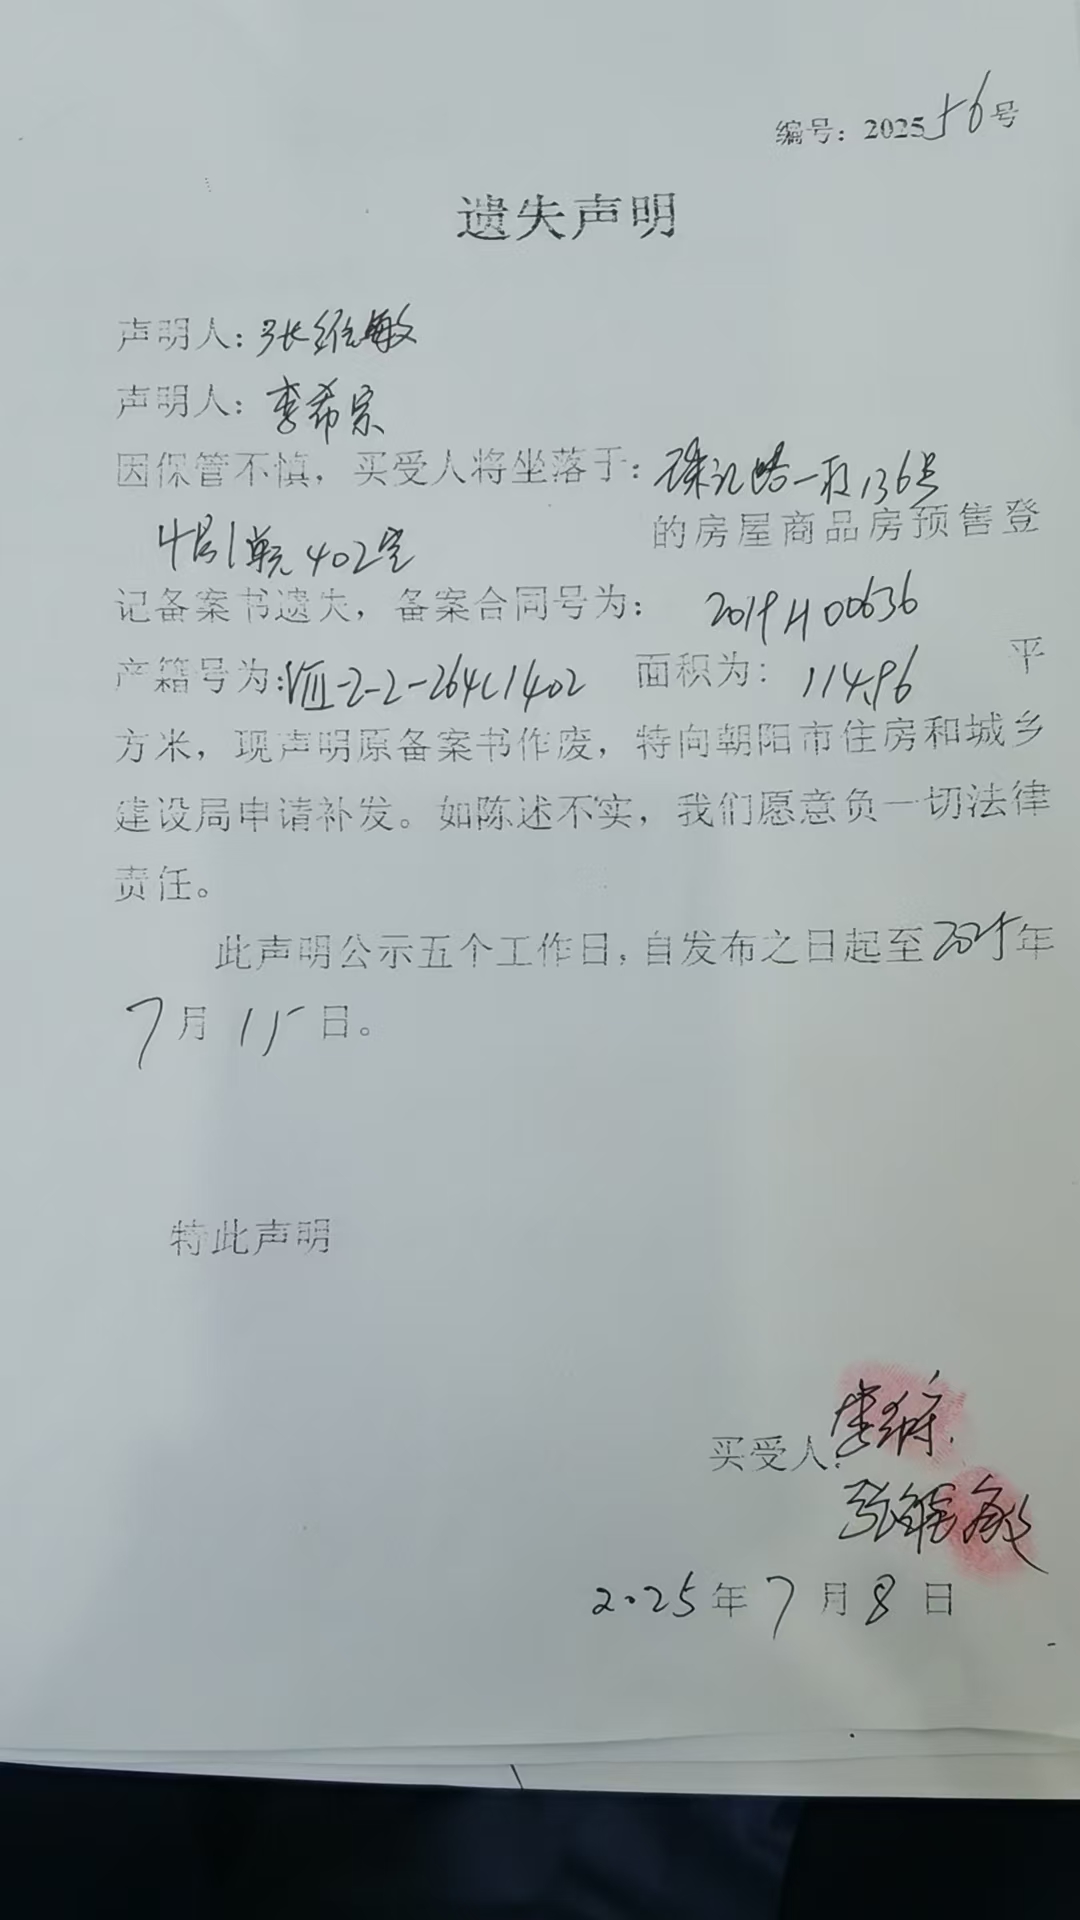 编号：202556号
遗失声明
声明人：张维敏
声明人：李希宗
因保管不慎，买受人将坐落于：珠江路一段136号
4号1单元402室 的房屋商品房预售登
记备案书遗失，备案合同号为： 2019H00636
产籍号为：VIII-2-2-264C1402 面积为： 114.96 平
方米，现声明原备案书作废，特向朝阳市住房和城乡
建设局申请补发。如陈述不实，我们愿意负一切法律
责任。
此声明公示五个工作日，自发布之日起至2025年
7月15日。
特此声明
买受人：李希宗
张维敏
2025年7月8日